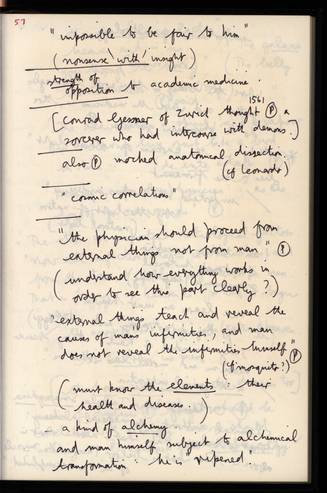 57
"impossible to be fair to him"
(nonsense 'with' insight)
strength of
opposition to academic medicine.
1561
[Conrad Gessner of Zurich thought Ⓟ a
sorcerer who had intercourse with demons.]
also Ⓟ mocked anatomical dissection.
(cf Leonardo)
"cosmic correlations"
"the physician should proceed from
external things not from man" Ⓟ
(understand how everything works in
order to see this part clearly?)
"external things teach and reveal the
causes of mans infirmities, and man
does not reveal the infirmities himself" Ⓟ
(cf mosquito?)
(must know the elements : their
health and diseases.)
- a kind of alchemy
and man himself subject to alchemical
transformation he is "ripened".